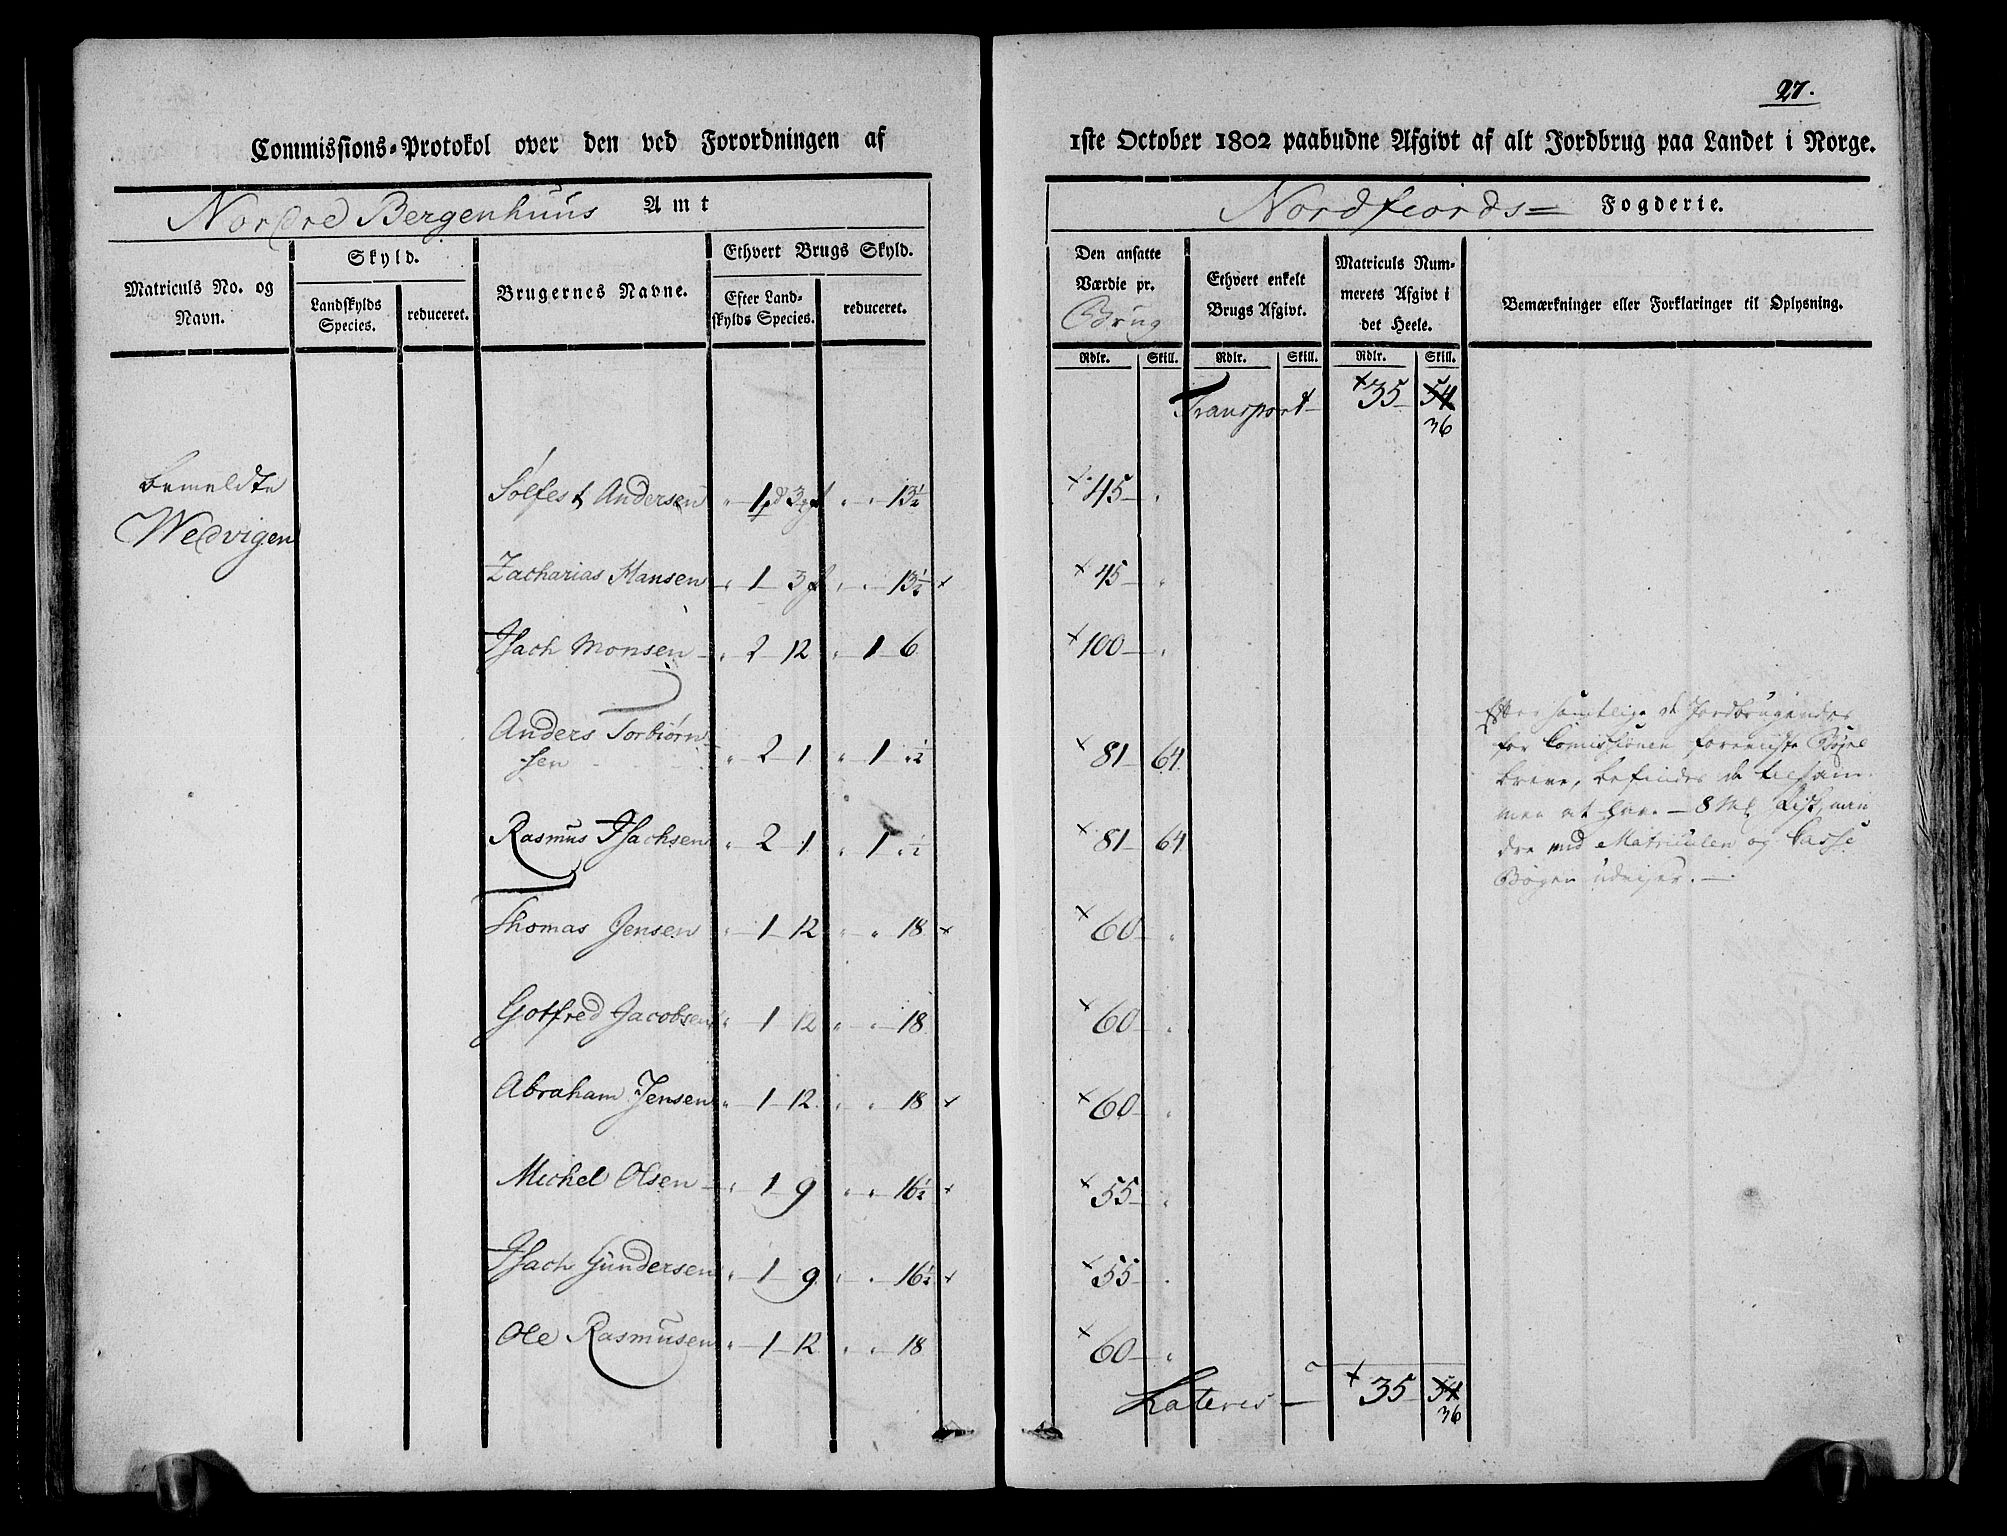 27.
Commissions-Protokol over den ved Forordningen af 1ste October 1802 paabudne Afgivt af alt Jordbrug paa Landet i Norge.
Nordre Bergenhuus Amt Nordfiords= Fogderie.
Matriculs No. og Navn.
Skyld.
Landskylds Species.
reduceret.
Brugernes Navne.
Ethvert Brugs Skyld.
Efter Landskylds Species.
reduceret.
Den ansatte Værdie pr. Brug
Ethvert enkelt Brugs Afgivt.
Matriculs Nummerets Afgivt i det Heele.
Bemærkninger eller Forklaringer til Oplysning.
Rdlr. Skill. Rdlr. Skill. Rdlr. Skill.
Transport – 35 – 54
36
bemeldte
Wedvigen
Sølfest Andersen " 1 pd 3 " " 13½ 45 – "
Zacharias Hansen " 1 – 3 " " 13½ 45 – "
Isach Monsen " 2 – 12 " 1 – 6 100 – "
Anders Torbiørn-
sen " 2 – 1 " 1 – ½ 81 – 64
Rasmus Isachsen " 2 – 1 " 1 – ½ 81 – 64
Thomas Jensen " 1 – 12 " " 18 60 – "
Gotfred Jacobsen " 1 – 12 " " 18 60 – "
Abraham Jensen " 1 – 12 " " 18 60 – "
Michel Olsen " 1 – 9 " " 16½ 55 – "
Isach Gundersen " 1 – 9 " " 16½ 55 – "
Ole Rasmusen " 1 – 12 " " 18 60 – "
Efter samtlige de Jordbrugendes
for Comissionen foreviiste Bøxel
breve, befindes de tilsam-
men at have – 8 Fisk, min
dre end Matriculen og Casse
Bogen udviser. –
Lateris – 35 – 54
36